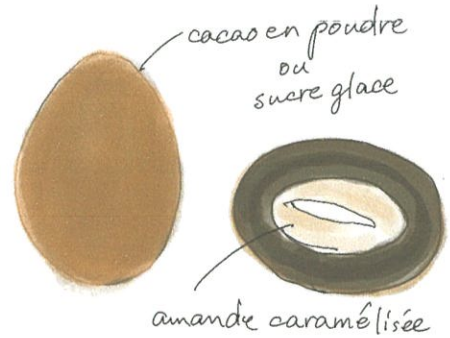 cacao en poudre
ou
sucre glace
amande caramélisée